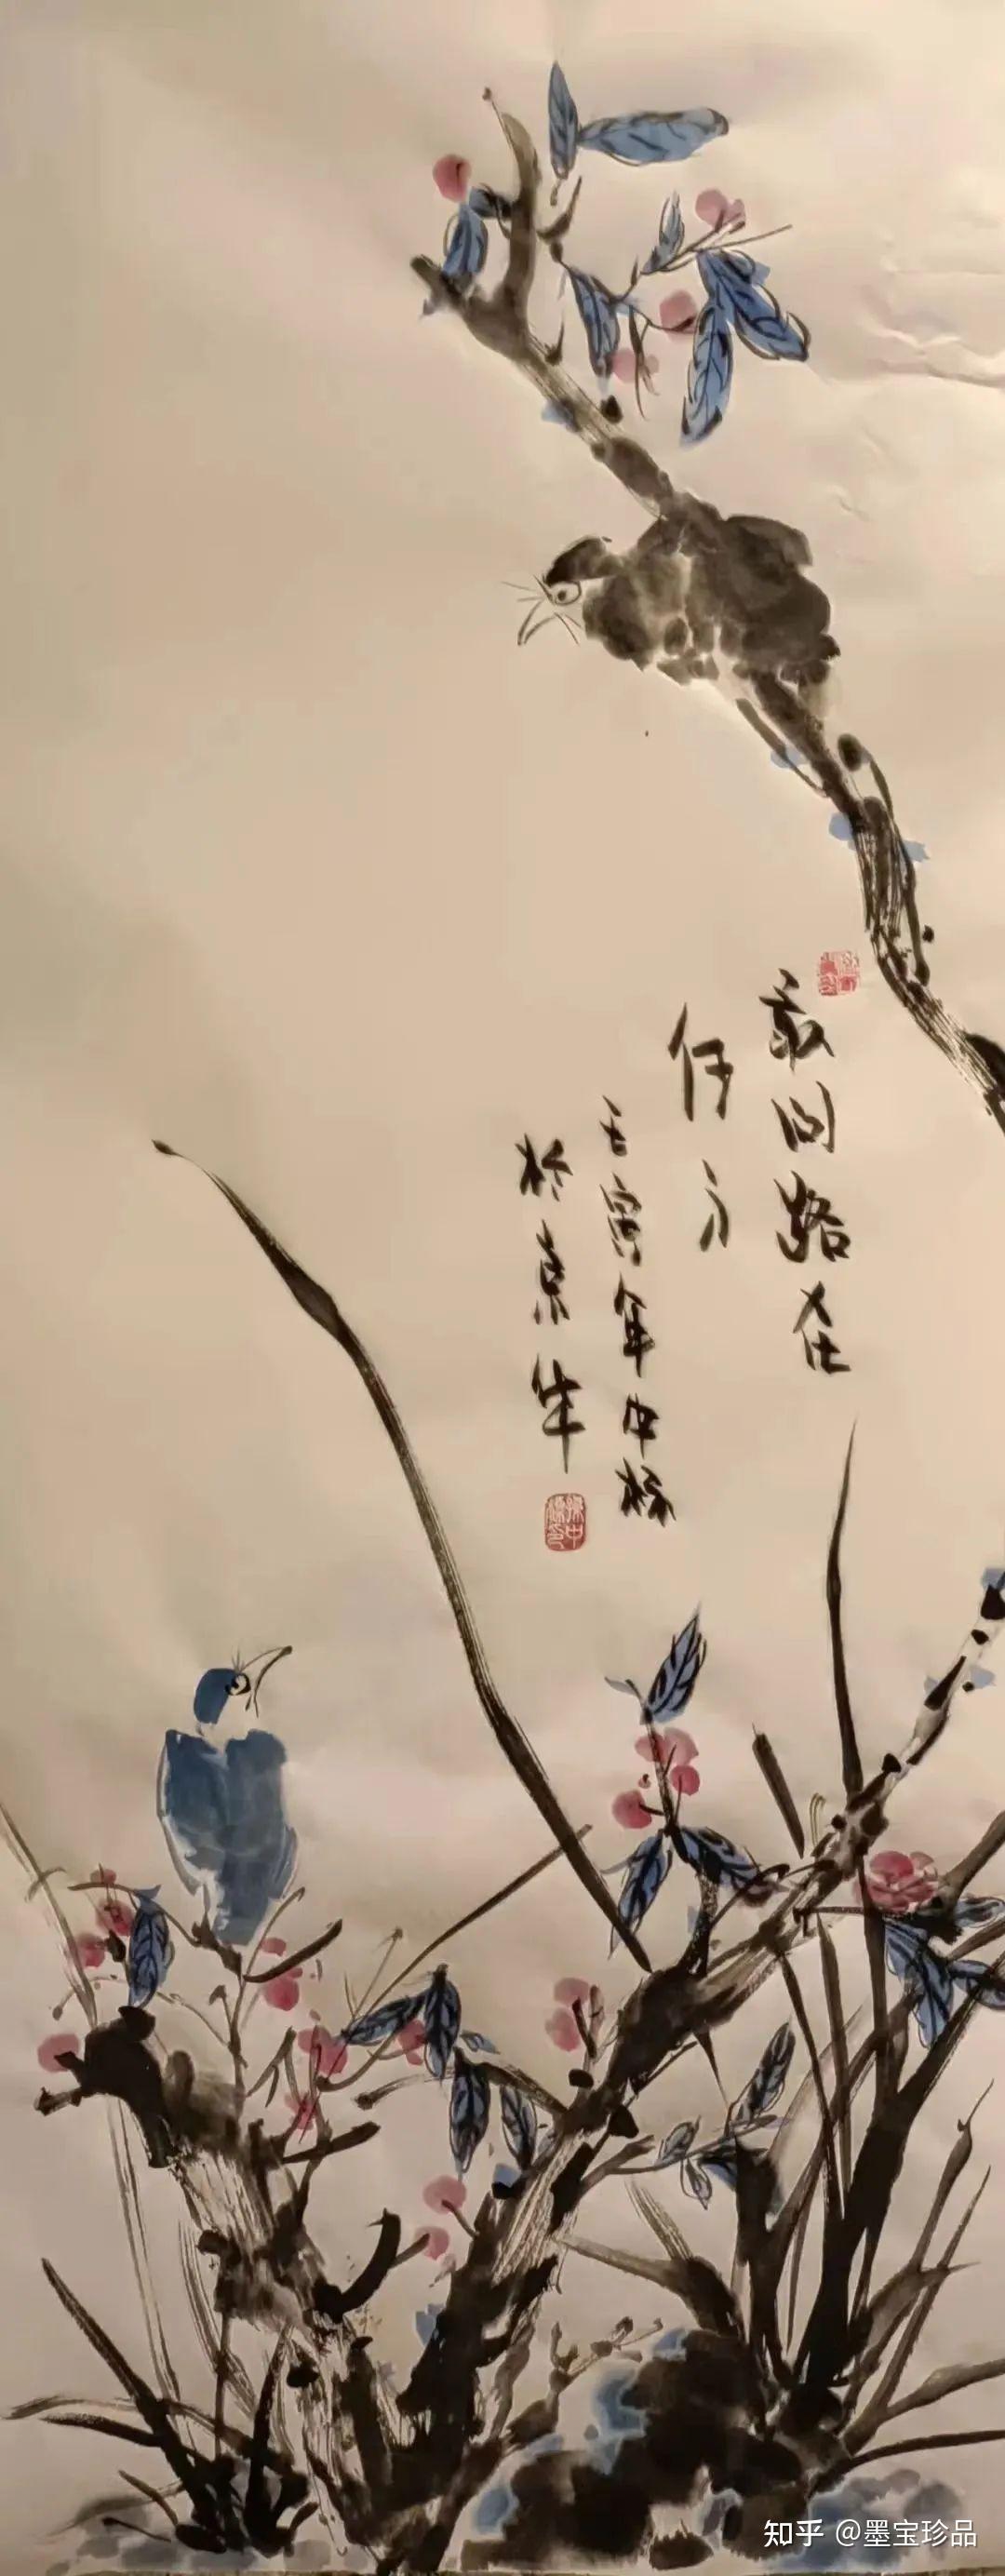 敢问路在
何方
壬寅年中标
於京华
知乎 @墨宝珍品